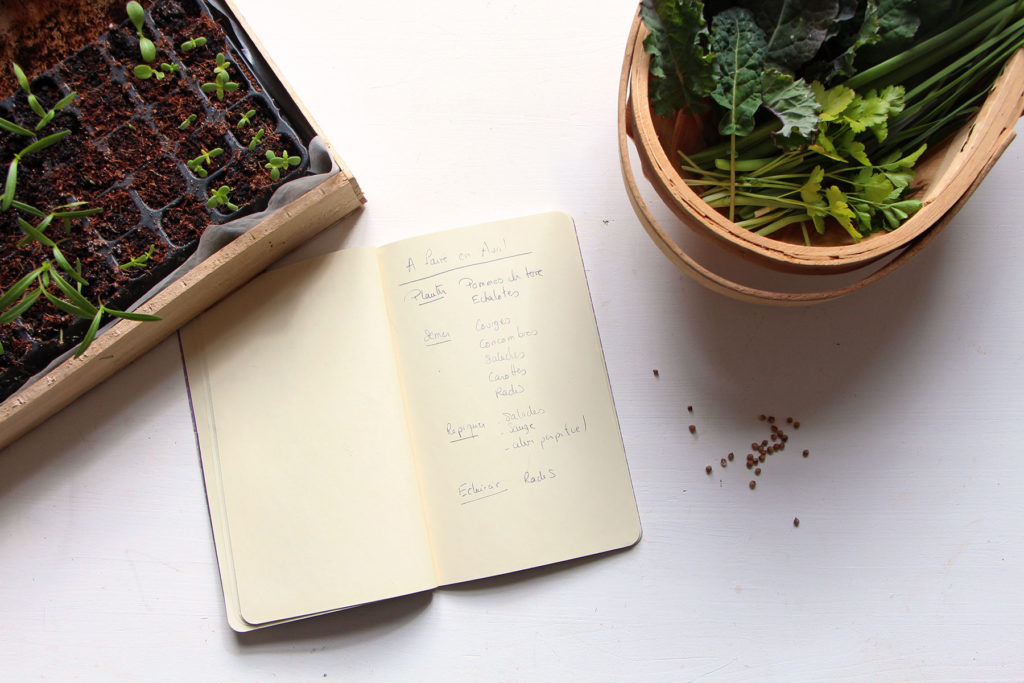 A faire en Avril
Planter Pommes de terre
Echalotes
Semer Courges
Concombres
Salades
Carottes
Radis
Repiquer - Salades
- Sauge
- céleri perpétuel
Eclaircir Radis